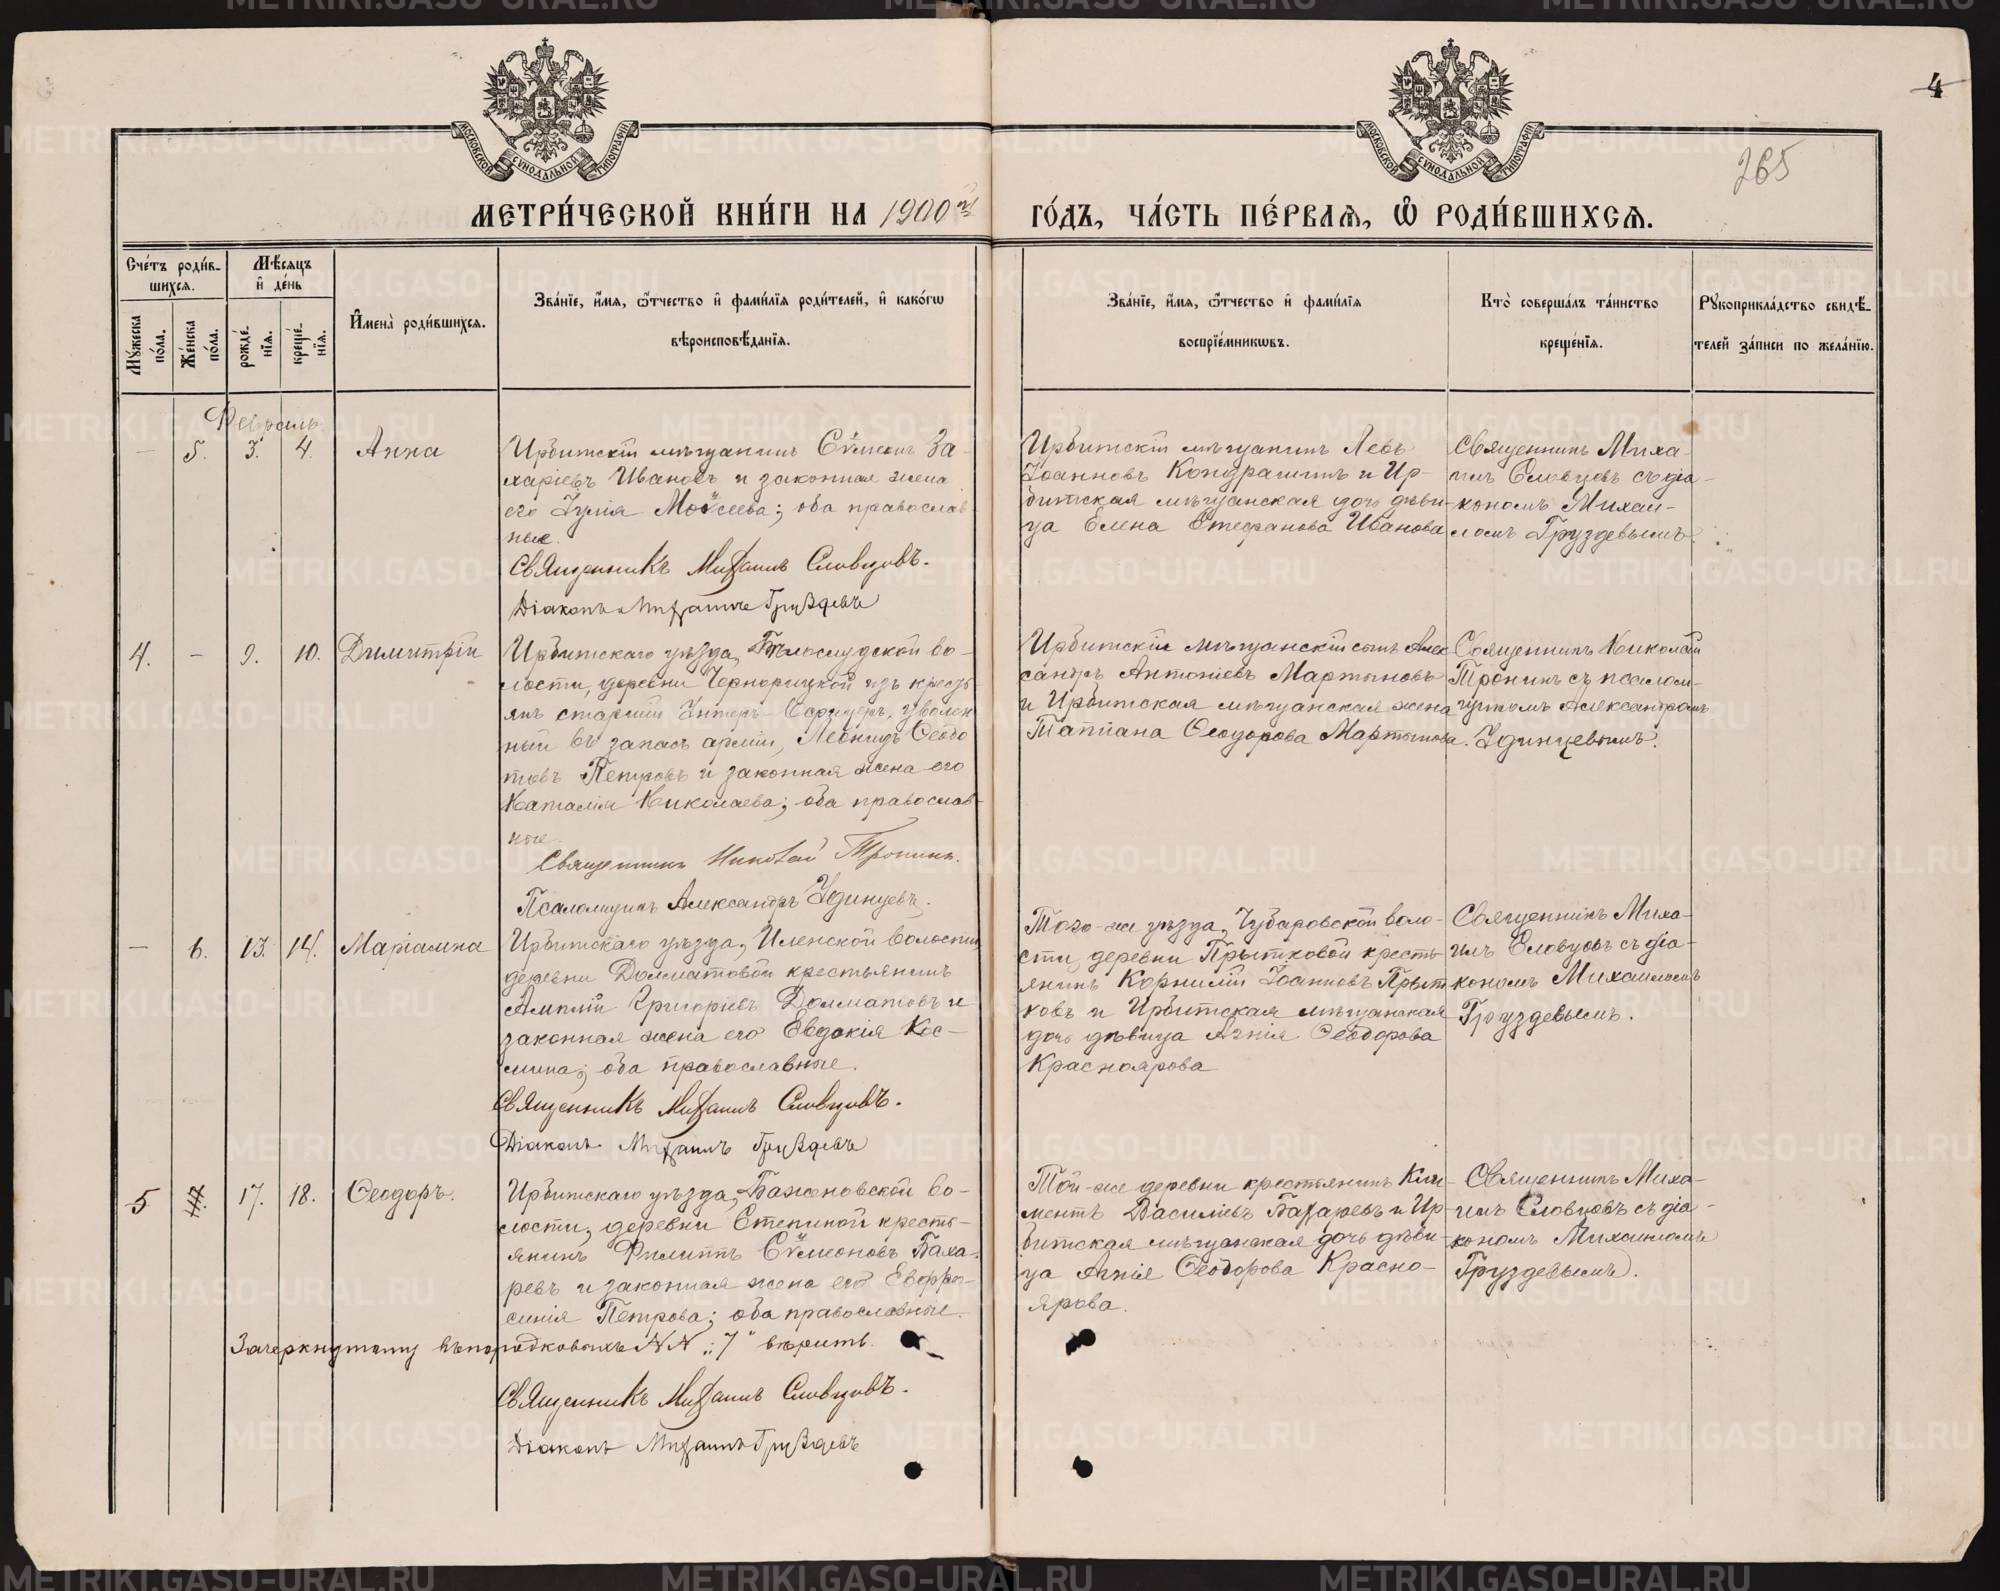 4
265
МОСКОВСКОЙ СѴНОДАЛЬНОЙ ТИПОГРАФІИ
МОСКОВСКОЙ СѴНОДАЛЬНОЙ ТИПОГРАФІИ
МЕТРИ́ЧЕСКОЙ КНИ́ГИ НА 1900й ГО́ДЪ, ЧА́СТЬ ПЕ́РВАЯ, Ѿ РОДИ́ВШИХСЯ.
Сче́тъ роди́в-
шихся.
Мѣ́сяцъ
и҆ де́нь
Му́жеска по́ла.
Же́нска по́ла.
рожде́нїя.
креще́нїя.
И҆мена̀ роди́вшихся.
Зва́нїе, и҆́мя, ѻ҆́тчество и҆ фами́лїя роди́телей, и҆ како́гѡ
вѣроисповѣ́данїя.
Зва́нїе, и҆́мя, ѻ҆́тчество и҆ фами́лїя
воспрїе́мникѡвъ.
Кто̀ соверша́лъ та́инство
креще́нїя.
Рꙋкоприкла́дство свидѣ́-
телей за́писи по жела́нїю.
Февраль
— 5. 3. 4. Анна
Ирбитскій мѣщанинъ Сѵмеонъ За-
харіевъ Ивановъ и законная жена
его Іулія Моѵсеева; оба православ
ные.
Священникъ Михаилъ Словцовъ.
Діаконъ Михаилъ Груздевъ
Ирбитскій мѣщанинъ Левъ
Іоанновъ Кондрашинъ и Ир-
битская мѣщанская дочь дѣви-
ца Елена Стефанова Иванова
Священникъ Миха-
илъ Словцовъ съ діа-
кономъ Михаи-
ломъ Груздевымъ.
4. — 9. 10. Димитрій
Ирбитскаго уѣзда, Бѣлослудской во-
лости, деревни Чернорицкой изъ кресть
янъ старшій Унтеръ-Офицеръ, уволен
ный въ запасъ арміи, Леонидъ Ѳеодо
товъ Петровъ и законная жена его
Наталія Николаева; оба православ-
ные
Священникъ Николай Тронинъ.
Псаломщикъ Александръ Удинцевъ.
Ирбитскій мѣщанскій сынъ Алек
сандръ Антоніевъ Мартыновъ
и Ирбитская мѣщанская жена
Татіана Ѳеодорова Мартынова.
Священникъ Николай
Тронинъ съ псалом-
щикомъ Александромъ
Удинцевымъ.
— 6. 13. 14. Маріамна
Ирбитскаго уѣзда, Иленской волости,
деревни Долматовой крестьянинъ
Амплій Григоріевъ Долматовъ и
законная жена его Евдокія Кос-
мина; оба православные.
Священникъ Михаилъ Словцовъ.
Діаконъ Михаилъ Груздевъ
Того-же уѣзда, Чубаровской воло-
сти, деревни Прытковой кресть
янинъ Корнилій Іоанновъ Прыт
ковъ и Ирбитская мѣщанская
дочь дѣвица Агнія Ѳеодорова
Красноярова
Священникъ Миха-
илъ Словцовъ съ діа-
кономъ Михаиломъ
Груздевымъ.
5 17. 18. Ѳеодоръ.
Ирбитскаго уѣзда, Баженовской во-
лости, деревни Степиной кресть-
янинъ Филиппъ Сѵмеоновъ Баха-
ревъ и законная жена его Евфро-
синія Петрова; оба православные.
Зачеркнутому въ порядковыхъ NN „7" вѣрить.
Священникъ Михаилъ Словцовъ.
Діаконъ Михаилъ Груздевъ
Той-же деревни крестьянинъ Кли-
ментъ Василіевъ Бахаревъ и Ир-
битская мѣщанская дочь дѣви-
ца Агнія Ѳеодорова Красно-
ярова.
Священникъ Миха-
илъ Словцовъ съ діа-
кономъ Михаиломъ
Груздевымъ.
METRIKI.GASO-URAL.RU